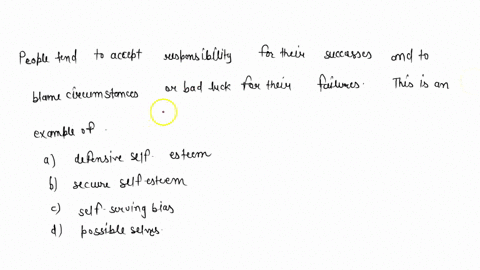 People tend to accept responsibility for their successes and to
blame circumstances or bad luck for their failures. This is an
example of.
a) defensive self. esteem
b) secure self esteem
c) self-serving bias
d) possible selves.